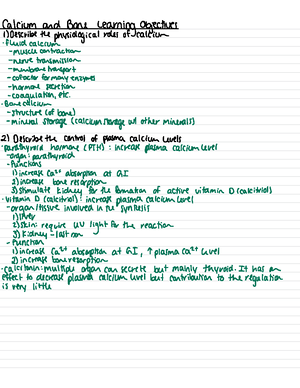 Calcium and Bone Learning Objectives
1) Describe the physiological roles of calcium
·Fluid calcium
-muscle contraction
-nerve transmission
-membrane transport
-cofactor for many enzymes
-hormone secretion
-coagulation, etc.
·Bone calcium
-structure (of bone)
-mineral storage (calcium storage w/ other minerals)
2) Describe the control of plasma calcium levels
·parathyroid hormone (PTH): increase plasma calcium level
-organ: parathyroid
-Functions
1) increase Ca²⁺ absorption at GI
2) increase bone resorption
3) stimulate kidney for the formation of active vitamin D (calcitriol)
·vitamin D (calcitriol): increase plasma calcium level
-organ/tissue involved in the synthesis
1) liver
2) skin: require UV light for the reaction
3) kidney - last one
-Function
1) increase Ca²⁺ absorption at GI, ↑ plasma Ca²⁺ level
2) increase bone resorption
·calcitonin: multiple organ can secrete but mainly thyroid. It has an
effect to decrease plasma calcium level but contribution to the regulation
is very little